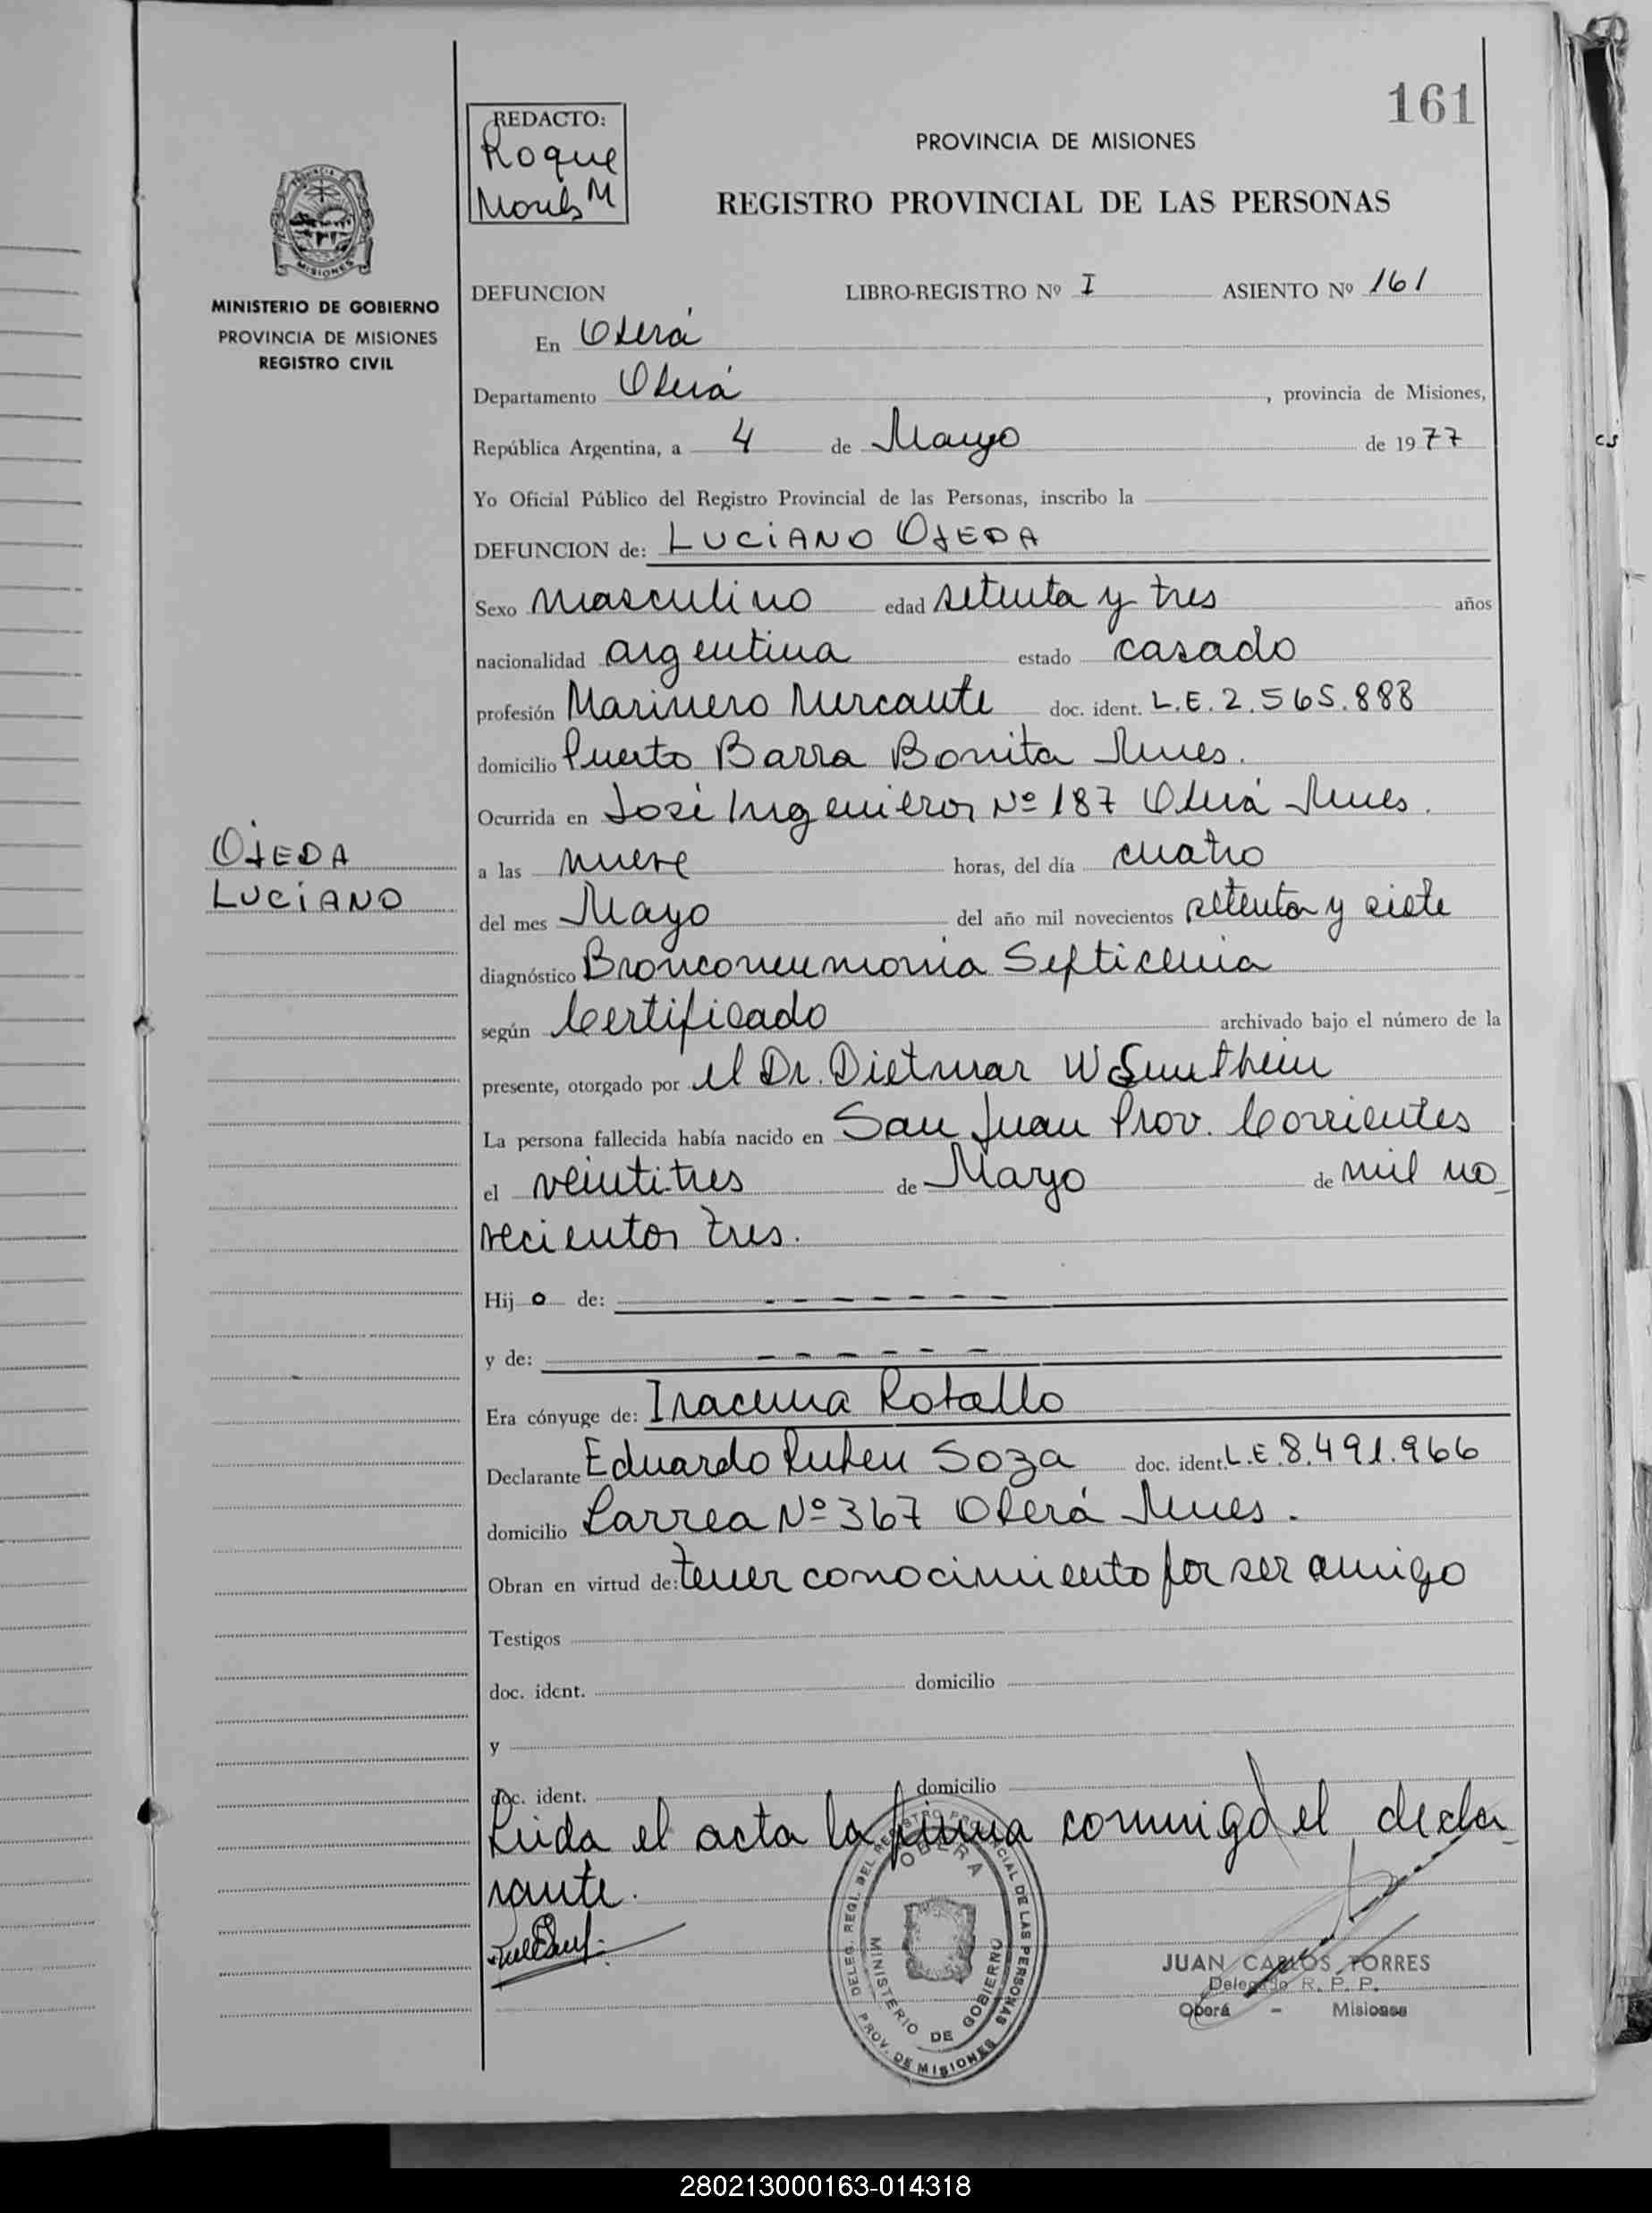 161
REDACTO:
Roque
M
PROVINCIA DE MISIONES
REGISTRO PROVINCIAL DE LAS PERSONAS
PROVINCIA
MISIONES
MINISTERIO DE GOBIERNO
PROVINCIA DE MISIONES
REGISTRO CIVIL
DEFUNCION LIBRO-REGISTRO Nº I ASIENTO Nº 161
En Oberá
Departamento Oberá, provincia de Misiones,
República Argentina, a 4 de Mayo de 1977
Yo Oficial Público del Registro Provincial de las Personas, inscribo la
DEFUNCION de: LUCIANO OJEDA
Sexo masculino edad setenta y tres años
nacionalidad argentina estado casado
profesión Marinero Mercante doc. ident. L.E. 2.565.888
domicilio Puerto Barra Bonita Mnes.
Ocurrida en José Ingenieros Nº 187 Oberá Mnes.
OJEDA
LUCIANO
a las nueve horas, del día cuatro
del mes Mayo del año mil novecientos setenta y siete
diagnóstico Bronconeumonia Septicemia
según Certificado archivado bajo el número de la
presente, otorgado por el Dr. Dietmar
La persona fallecida había nacido en San Juan Prov. Corrientes
el veintitres de Mayo de mil no_
vecientos tres.
Hijo de: - - - - - - -
y de: - - - - - -
Era cónyuge de: Iracema Rotallo
Declarante Eduardo Ruben Soza doc. ident. L.E. 8.491.966
domicilio Larrea Nº 367 Oberá Mnes.
Obran en virtud de: tener conocimiento por ser amigo
Testigos
doc. ident. domicilio
y
doc. ident. domicilio
Leida el acta la firma conmigo el decla_
rante.
DELEG. REGI. DEL REGISTRO PROVINCIAL DE LAS PERSONAS
OBERA
MINISTERIO DE GOBIERNO
PROV. DE MISIONES
JUAN CARLOS TORRES
Delegado R. P. P.
Oberá - Misiones
280213000163-014318